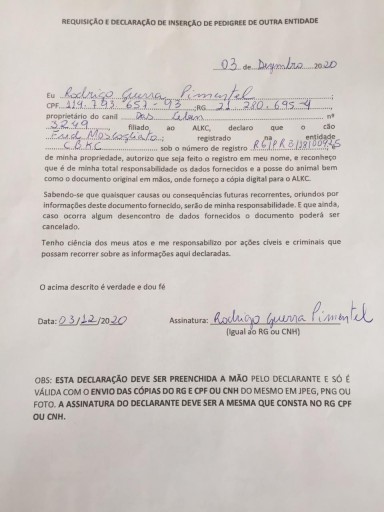 REQUISIÇÃO E DECLARAÇÃO DE INSERÇÃO DE PEDIGREE DE OUTRA ENTIDADE
03 de Dezembro 2020
Eu Rodrigo Guerra Pimentel ;
CPF 119.793.657-93 ;RG 21.280.695-4
proprietário do canil Das nº
3249 , filiado ao ALKC, declaro que o cão
Fred registrado na entidade
CBKC sob o número de registro , é
de minha propriedade, autorizo que seja feito o registro em meu nome, e reconheço
que é de minha total responsabilidade os dados fornecidos e a posse do animal bem
como o documento original em mãos, onde forneço a cópia digital para o ALKC.
Sabendo-se que quaisquer causas ou consequências futuras recorrentes, oriundos por
informações deste documento fornecido, serão de minha responsabilidade. E que ainda,
caso ocorra algum desencontro de dados fornecidos o documento poderá ser
cancelado.
Tenho ciência dos meus atos e me responsabilizo por ações cíveis e criminais que
possam recorrer sobre as informações aqui declaradas.
O acima descrito é verdade e dou fé
Data: 03/12/2020 Assinatura: Rodrigo Guerra Pimentel
(Igual ao RG ou CNH)
OBS: ESTA DECLARAÇÃO DEVE SER PREENCHIDA A MÃO PELO DECLARANTE E SÓ É
VÁLIDA COM O ENVIO DAS CÓPIAS DO RG E CPF OU CNH DO MESMO EM JPEG, PNG OU
FOTO. A ASSINATURA DO DECLARANTE DEVE SER A MESMA QUE CONSTA NO RG CPF
OU CNH.